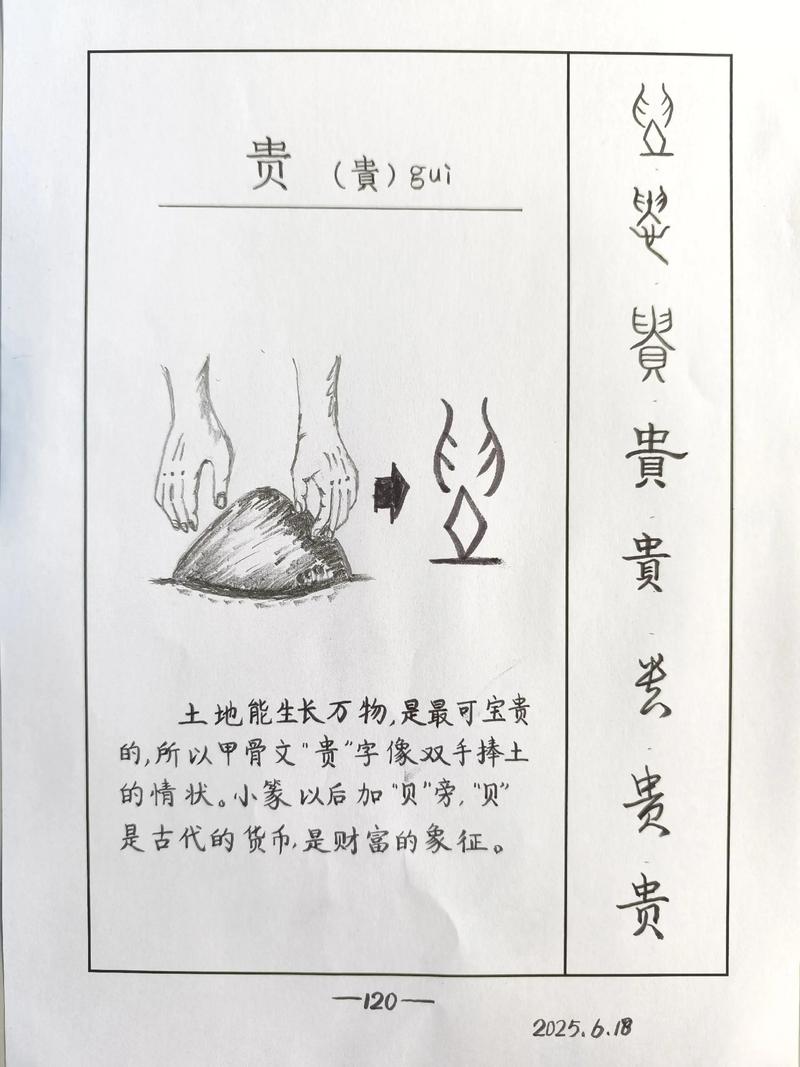 贵 (貴) gui
土地能生长万物,是最可宝贵
的,所以甲骨文"贵"字像双手捧土
的情状。小篆以后加"贝"旁,"贝"
是古代的货币,是财富的象征。
貴
貴
贵
贵
—120—
2025.6.18